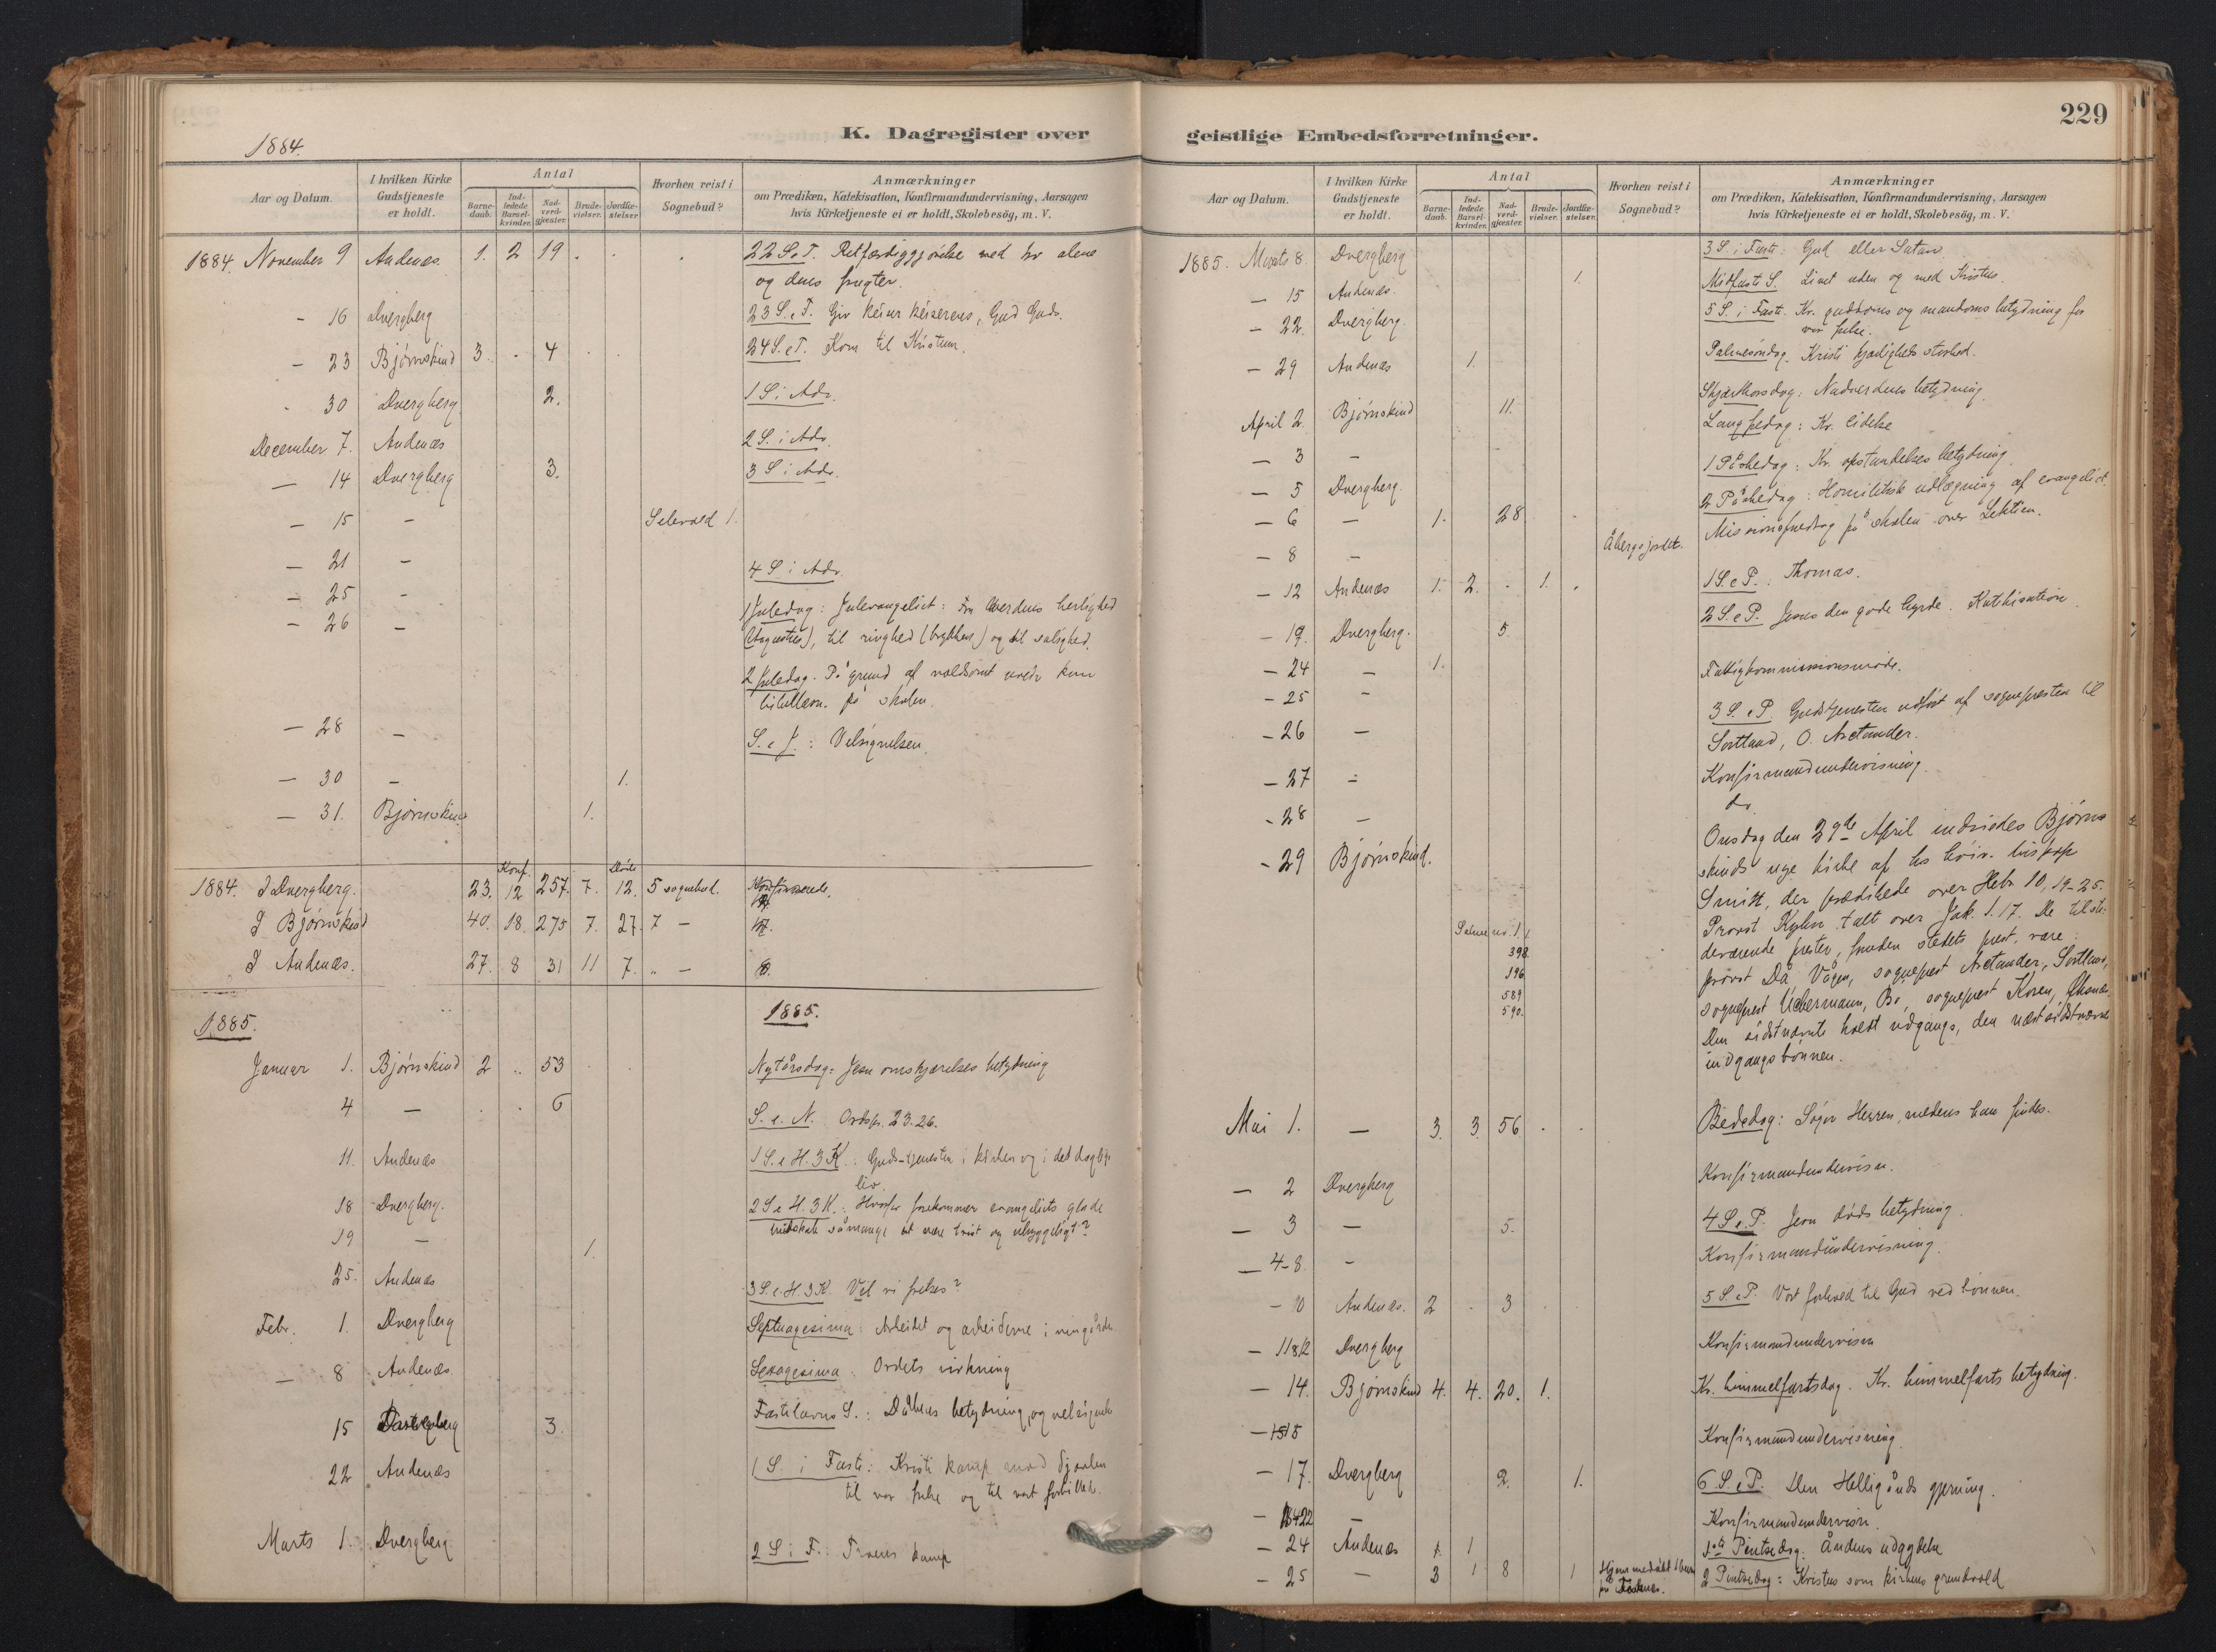 K. Dagregister over
1884.
Aar og Datum.
I hvilken Kirke Gudstjeneste er holdt.
Antal
Barnedaab.
Indledede Barselkvinder.
Nadverdgjæster.
Brudevielser.
Jordfæstelser
Hvorhen reist i Sognebud?
Anmærkninger
om Prædiken, Katekisation, Konfirmandundervisning, Aarsagen
hvis Kirketjeneste ei er holdt, Skolebesög, m. V.
1884. November 9 Andenæs. 1. 2 19. 22 S. e T. Retfærdiggjørelse ved tro alene
og dens frugter.
- 16 Dvergberg 23 S. e. T. Giv keiser keiserens, Gud Guds.
- 23 Bjørnskind 3. . 4 24 S. e T. Kom til Kristum.
- 30 Dvergberg 2. 1 S. i Adv.
December 7. Andenæs 2 S. i Adv.
— 14 Dvergberg 3. 3 S i Adv.
— 15 - 1.
— 21 - 4 S. i Adv.
— 25 - 1 Juledag: Juleevangeliet: Fra verdens herlighed
— 26 - (Augustus), til ringhed (krybben) og til salighed.
2 Juledag. På grund af voldsomt veir kun
bibellæsn. på skolen.
— 28 - S. e J.: Velsignelsen.
— 30 - 1.
— 31. Bjørnskind 1.
Konf. Døde
1884. I Dvergberg. 23. 12 257. 7. 12. 5 sognebud. Konfirmerede.
I Bjørnskind 40. 18. 275 7. 27. 7 —
I Andenæs. 27. 8 31 11 7. „ —
1885. 1885.
Januar 1. Bjørnskind 2 .. 53 Nytårsdag: Jesu omskjærelses betydning
4 — . . 6 S. e. N. Ordspr. 23.26.
11. Andenæs 1 S. e H. 3 K.: Guds-tjenesten i kirken og i det daglige
liv.
18 Dvergberg. 2 S e H. 3 K.: Hvorfor forekommer evangeliets glade
budskab så mange at være trist og uhyggeligt?
19 — 1.
25. Andenæs 3 S. e. H. 3 K. Vil vi frelses?
Febr. 1. Dvergberg Septuagesima: Arbeidet og arbeiderne i vingården
— 8 Andenæs Sexagesima. Ordets virkning
15 Dvergberg 3. Fastelavns S.: Dåbens betydning og velsignelse
22 Andenæs 1 S. i Faste: Kristi kamp mod djævelen
til vor frelse og til vort forbillede.
Marts 1. Dvergberg 2 S i F.: Troens kamp
229
geistlige Embedsforretninger.
Aar og Datum.
I hvilken Kirke Gudstjeneste er holdt.
Antal
Barnedaab.
Indledede Barselkvinder.
Nadverdgjæster.
Brudevielser.
Jordfæstelser.
Hvorhen reist i Sognebud?
Anmærkninger
om Prædiken, Katekisation, Konfirmandundervisning, Aarsagen
hvis Kirketjeneste ei er holdt, Skolebesög, m. V.
1885. Marts 8. Dvergberg 3 S. i Faste: Gud eller Satan.
— 15 Andenæs. 1. Midfaste S. Livet uden og med Kristus.
— 22. Dvergberg. 5 S. i Faste. Kr. guddoms og manddoms betydning for
vor frelse.
— 29 Andenæs 1. Palmesøndag. Kristi kjærligheds storhed.
April 2. Bjørnskind 11. Skjærthorsdag: Nadverdens betydning.
— 3 - Langfredag: Kr. lidelse
— 5 Dvergberg. 1 Påskedag: Kr. opstandelses betydning.
— 6 — 1. 28 2 Påskedag: Homiletisk udlægning af evangeliet.
— 8 - Åbergsjordet. Missionsforedrag på skolen over Lektien.
— 12 Andenæs 1. 2. . 1. 1 S. e P.: Thomas.
— 19. Dvergberg. 5. 2 S. e P. Jesus den gode hyrde. Katekisation.
— 24 — 1.
— 25 - Fattigkommissionsmøde.
— 26 — 3 S. e P. Gudstjenesten udført af sognepresten til
Sortland, O. Arctander.
— 27 - Konfirmandundervisning.
- 28 — do.
- 29 Bjørnskind. Onsdag den 29de April indviedes Bjørn-
skinds nye kirke af hs høiv. biskop
Smitt, der prædikede over Hebr. 10,19-25.
Provst talt over Jak. 1.17. De tilste-
deværende prester, foruden stedets prest, vare:
provst Då Vågan, sogneprest Arctander, Sortland,
sogneprest Uchermann, Bø, sogneprest Koren,
Den sidstnævnte holdt udgangs, den næstsidstnævnte
indgangsbønnen.
Salme
398.
196
589
590.
Mai 1. — 3. 3. 56 Bededag: Søger Herren, medens han findes.
— 2 Dvergberg Konfirmandundervisn.
— 3 — 5. 4 S. e. P. Jesu døds betydning.
— 4-8. - Konfirmandundervisning.
- 10 Andenæs. 2 . 3 5 S. e P. Vort forhold til Gud ved bønnen.
— 11&12 Dvergberg Konfirmandundervisn
— 14. Bjørnskind 4. 4. 20. 1. Kr. himmelfartsdag. Kr. himmelfarts betydning.
— 15 Konfirmandundervisning.
— 17. Dvergberg 2. 1. 6 S. e P. Den Helligånds gjerning.
22 — Konfirmandundervisn.
— 24 Andenæs 1. 1 1ste Pintsedag. Åndens udgydelse
— 25 — 3 1 8 1 Hjemmedøbt 1 barn 2 Pintsedag: Kristus som kirkens grundvold